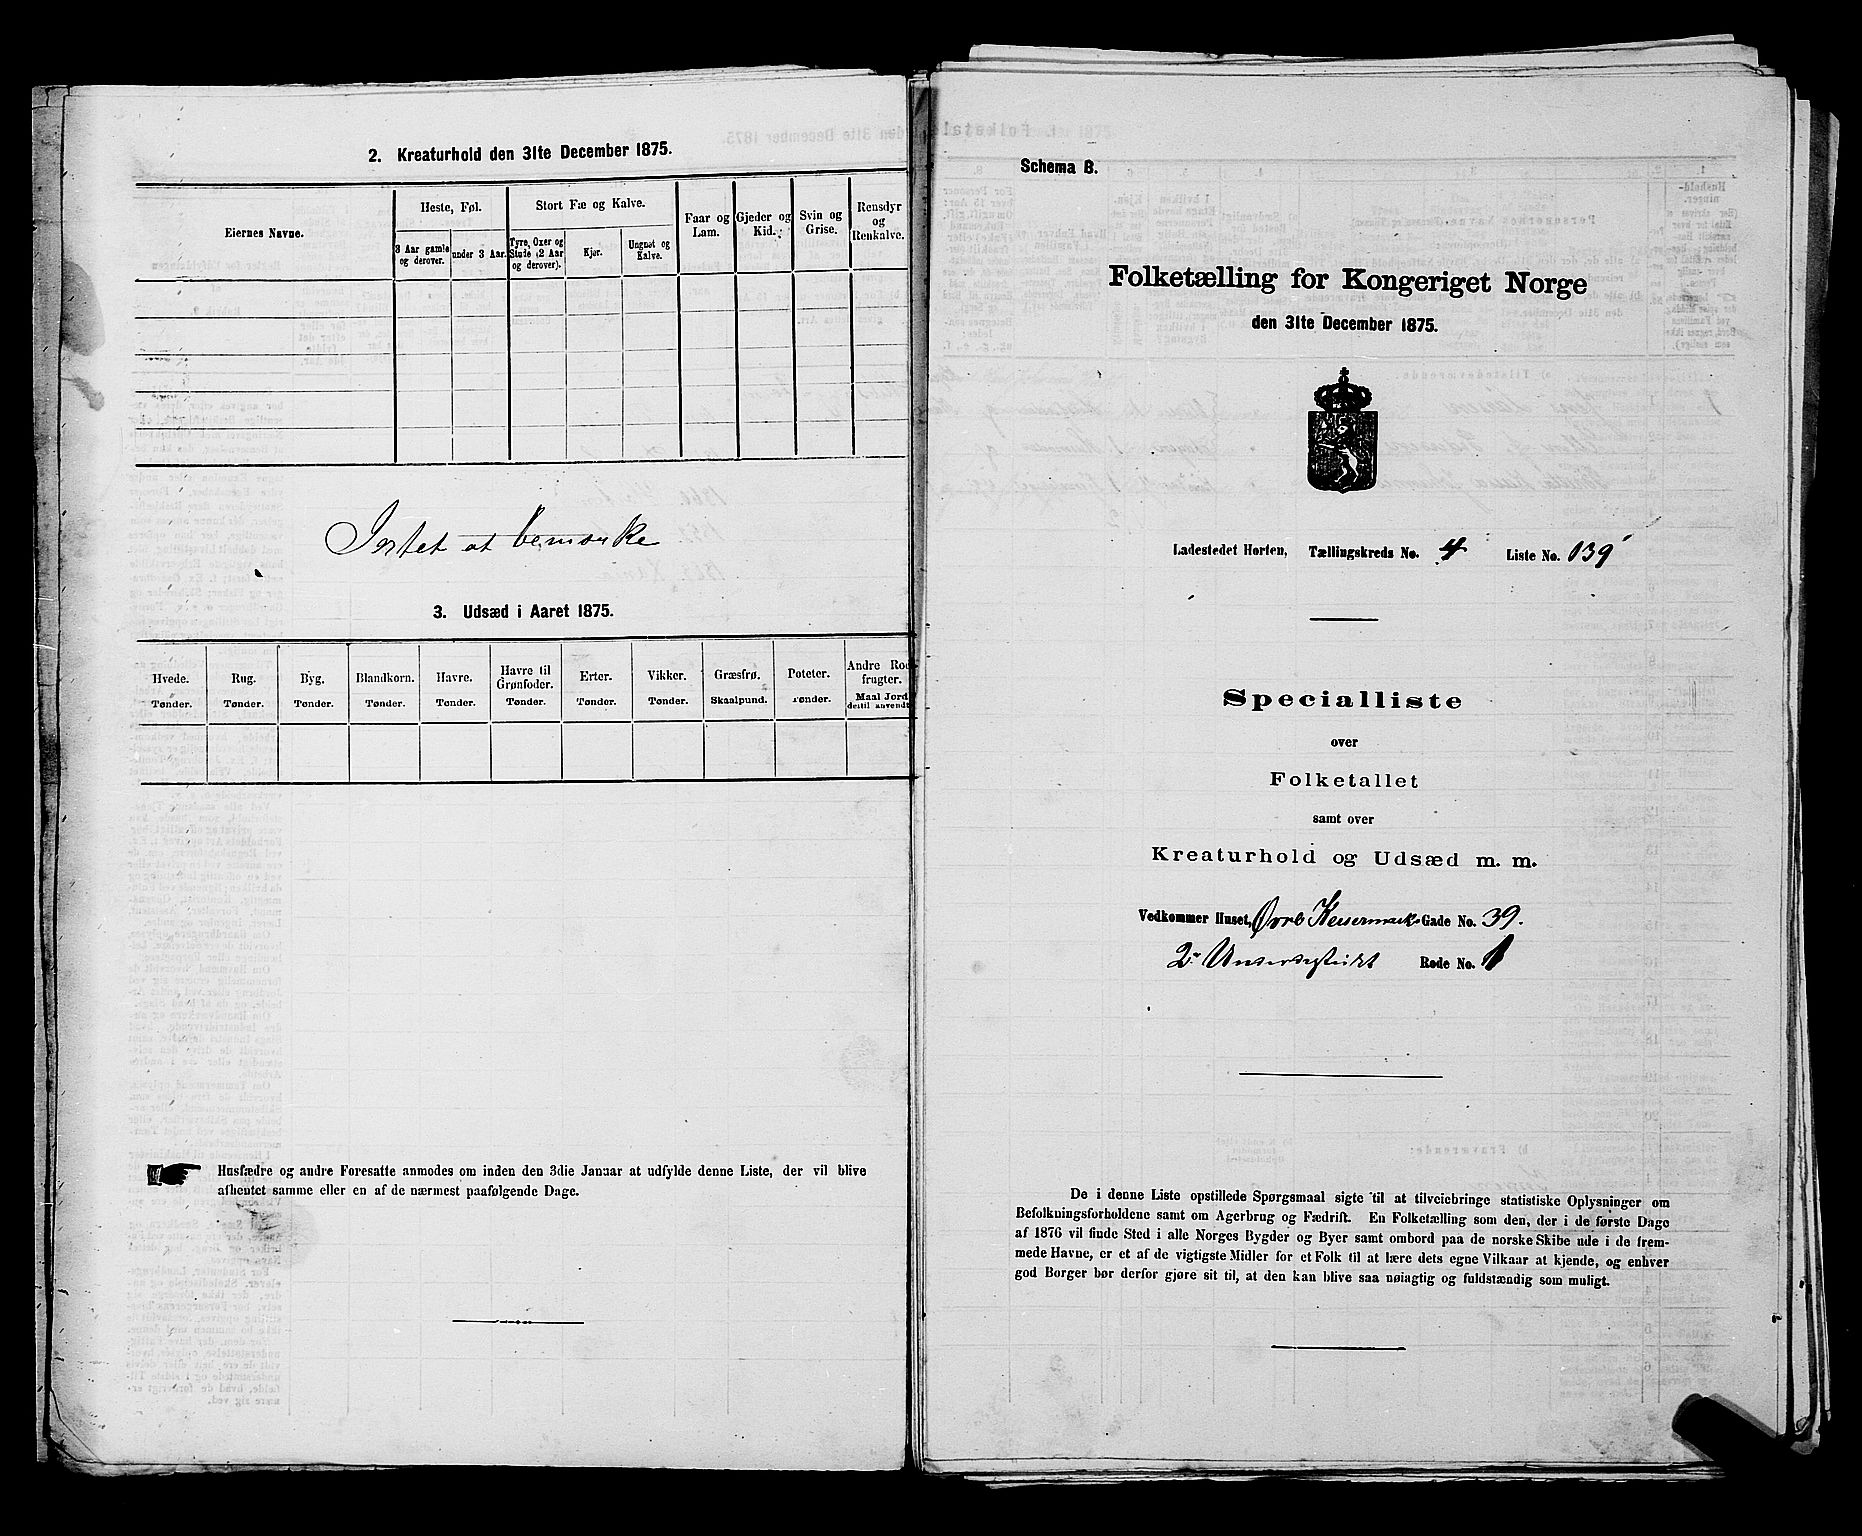 2. Kreaturhold den 31te December 1875.
Eiernes Navne.
Heste, Føl.
3 Aar gamle og derover.
under 3 Aar.
Stort Fæ og Kalve.
Tyre, Oxer og Stude (2 Aar og derover).
Kjør.
Ungnøt og Kalve.
Faar og Lam.
Gjeder og Kid.
Svin og Grise.
Rensdyr og Renkalve.
Intet at bemærke
3. Udsæd i Aaret 1875.
Hvede. Tønder.
Rug. Tønder.
Byg. Tønder.
Blandkorn. Tønder.
Havre. Tønder.
Havre til Grønfoder. Tønder.
Erter. Tønder.
Vikker. Tønder.
Græsfrø. Skaalpund.
Poteter. Tønder.
Andre Rodfrugter. Maal Jord dertil anvendt
Husfædre og andre Foresatte anmodes om inden den 3die Januar at udfylde denne Liste, der vil blive
afhentet samme eller en af de nærmest paafølgende Dage.
Schema B.
Folketælling for Kongeriget Norge
den 31te December 1875.
Ladestedet Horten, Tællingskreds No. 4 Liste No. 139
Specialliste
over
Folketallet
samt over
Kreaturhold og Udsæd m. m.
Vedkommer Huset, Øvre Keisermarks Gade No. 39.
2. Rode No. 1
De i denne Liste opstillede Spørgsmaal sigte til at tilveiebringe statistiske Oplysninger om
Befolkningsforholdene samt om Agerbrug og Fædrift. En Folketælling som den, der i de første Dage
af 1876 vil finde Sted i alle Norges Bygder og Byer samt ombord paa de norske Skibe ude i de frem-
mede Havne, er et af de vigtigste Midler for et Folk til at lære dets egne Vilkaar at kjende, og enhver
god Borger bør derfor gjøre sit til, at den kan blive saa nøiagtig og fuldstændig som muligt.